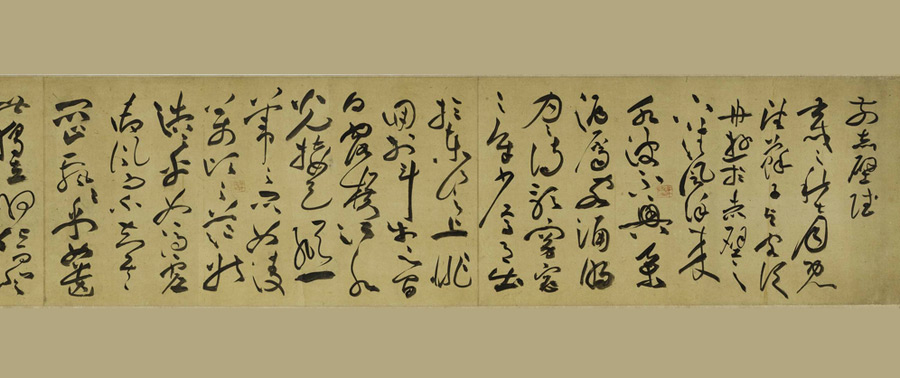 前赤壁賦
壬戌之秋七月既
望蘇子與客泛
舟遊於赤壁之
下清風徐來
水波不興舉
酒屬客誦明
月之詩歌窈窕
之章少焉月出
於東山之上徘
徊於斗牛之間
白露橫江水
光接天縱一
葦之所如凌
萬頃之茫然
浩浩乎如馮虛
御風而不知其
所止飄飄乎如遺
世獨立羽化